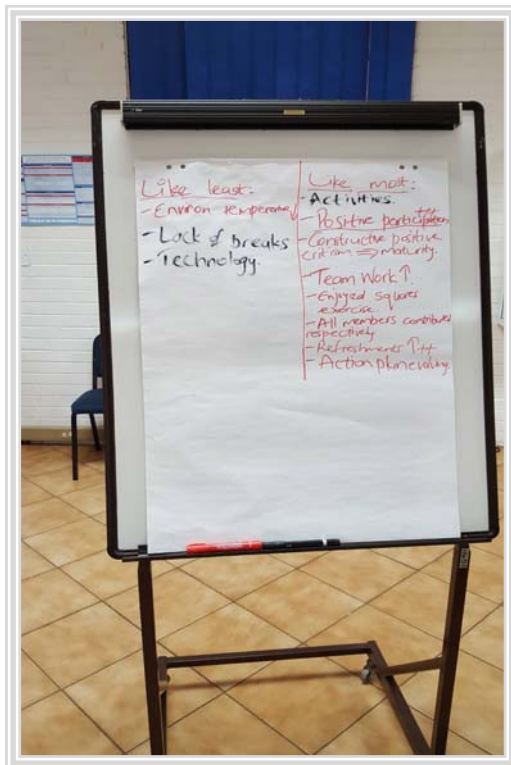 Like least:
- Environ temperature ↓
- Lack of breaks
- Technology.
Like most:
- Activities.
- Positive participation ++
- Constructive positive
critism ⇒ maturity.
- Team Work ↑.
- Enjoyed squares
exercise.
- All members contributed
respectively
- Refreshments ↑ ++
- Action plan evolving.